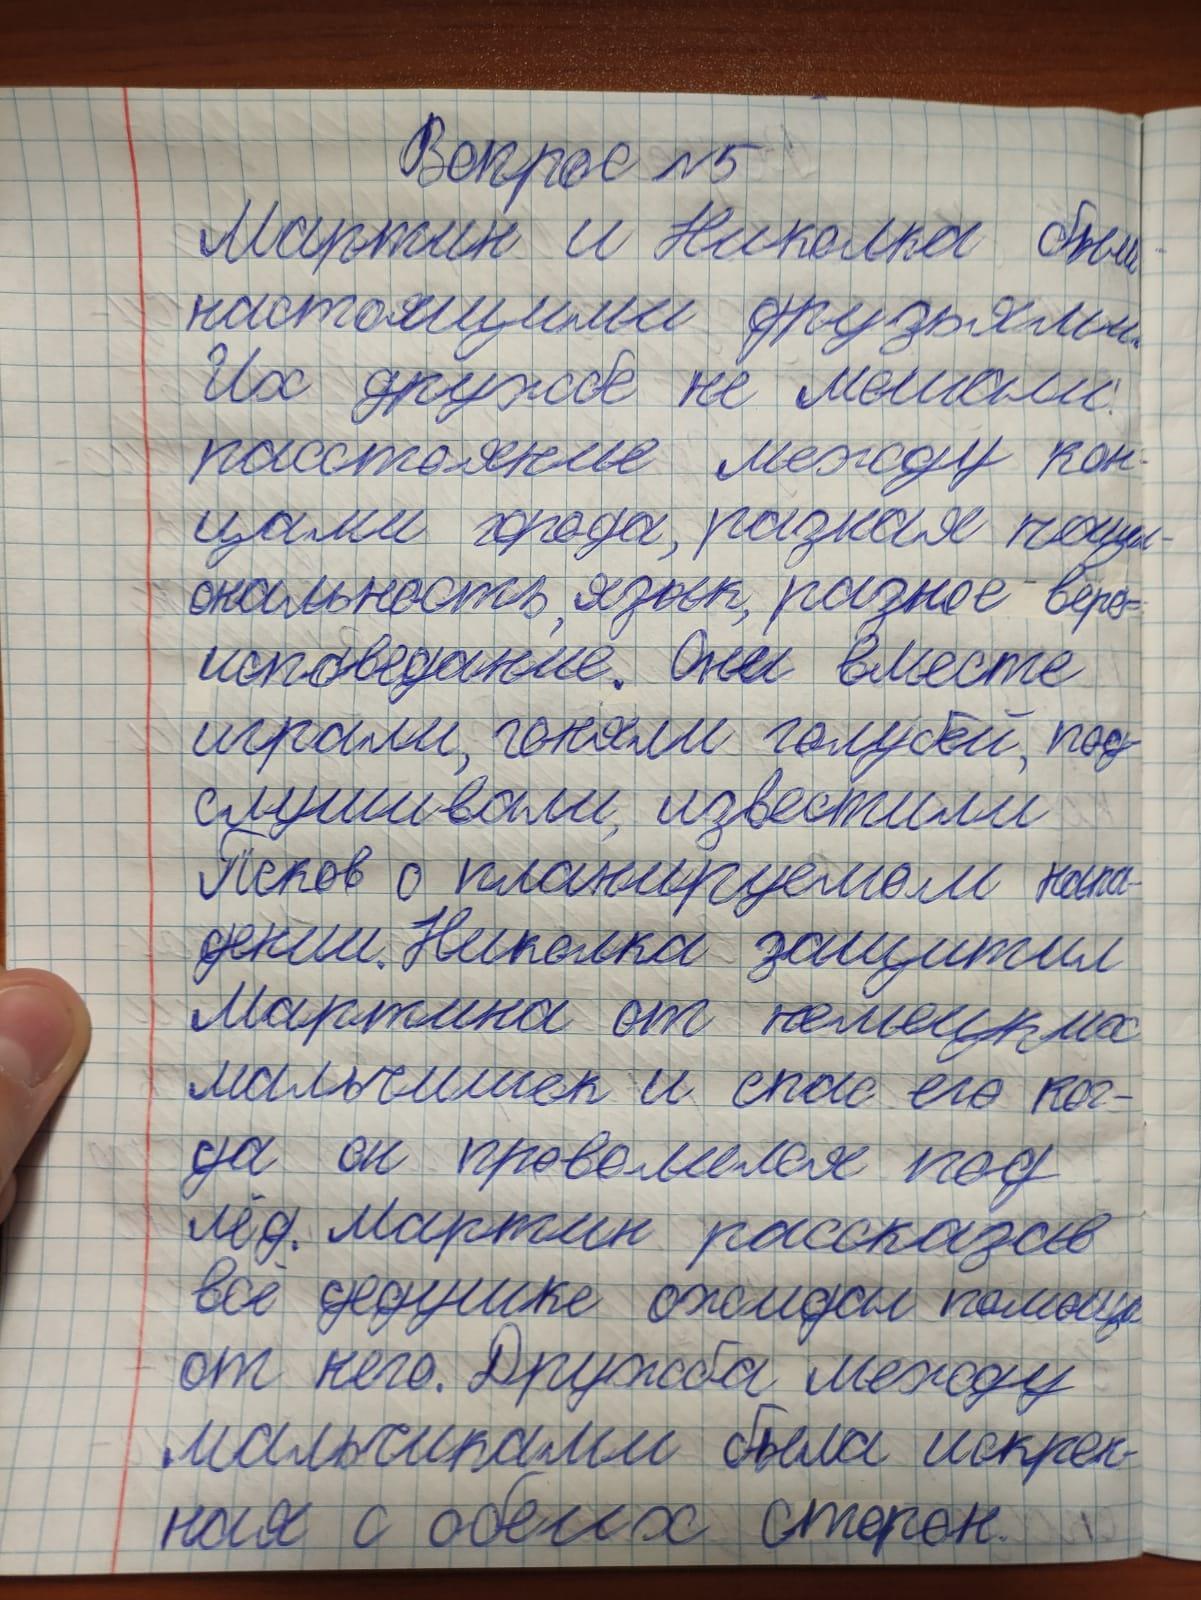 Вопрос №5
Мартин и Николка были
настоящими друзьями.
Их дружбе не мешали
расстояние между кон-
цами города, разная наци-
ональность, язык, разное веро-
исповедание. Они вместе
играли, гоняли голубей, под-
слушивали, известили
Псков о планируемом напа-
дении. Николка защитил
Мартина от немецких
мальчишек и спас его ког-
да он провалился под
лёд. Мартин рассказав
всё дедушке ожидал помощи
от него. Дружба между
мальчиками была искрен-
ная с обеих сторон.